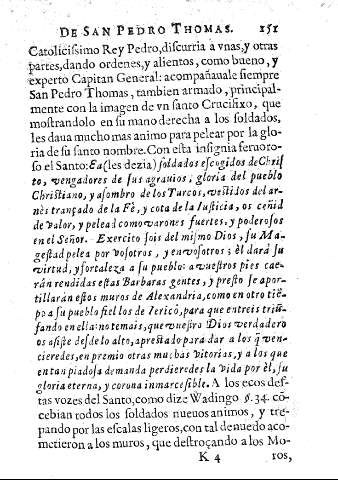 DE SAN PEDRO THOMAS. 151
Catolicissimo Rey Pedro, discurria a vnas, y otras
partes, dando ordenes, y alientos, como bueno, y
experto Capitan General: acompañauale siempre
San Pedro Thomas, tambien armado, principal-
mente con la imagen de vn santo Crucifixo, que
mostrandolo en su mano derecha a los soldados,
les daua mucho mas animo para pelear por la glo-
ria de su santo nombre. Con esta insignia feruoro-
so el Santo: Ea (les dezia) soldados escogidos de Chris-
to, vengadores de sus agrauios, gloria del pueblo
Christiano, y asombro de los Turcos, vestidos del ar-
nès trançado de la Fè, y cota de la Iusticia, os ceñid
de valor, y pelead como varones fuertes, y poderosos
en el Señor. Exercito sois del mismo Dios, su Ma-
gestad pelea por vosotros, y en vosotros; èl darà su
virtud, y fortaleza a su pueblo: a vuestros pies cae-
ràn rendidas estas Barbaras gentes, y presto se apor-
tillaràn estos muros de Alexandria, como en otro tiẽ-
po a su pueblo fiel los de Iericò, para que entreis triũ-
fando en ella: no temais, que vuestro Dios verdadero
os asiste desde lo alto, aprestado para dar a los q̃ ven-
cieredes, en premio otras muchas vitorias, y a los que
en tan piadosa demanda perdieredes la vida por èl, su
gloria eterna, y corona inmarcesible. A los ecos des-
tas vozes del Santo, como dize Wadingo §. 34. cõ-
cebian todos los soldados nueuos animos, y tre-
pando por las escalas ligeros, con tal denuedo aco-
metieron a los muros, que destroçando a los Mo-
K 4 ros,